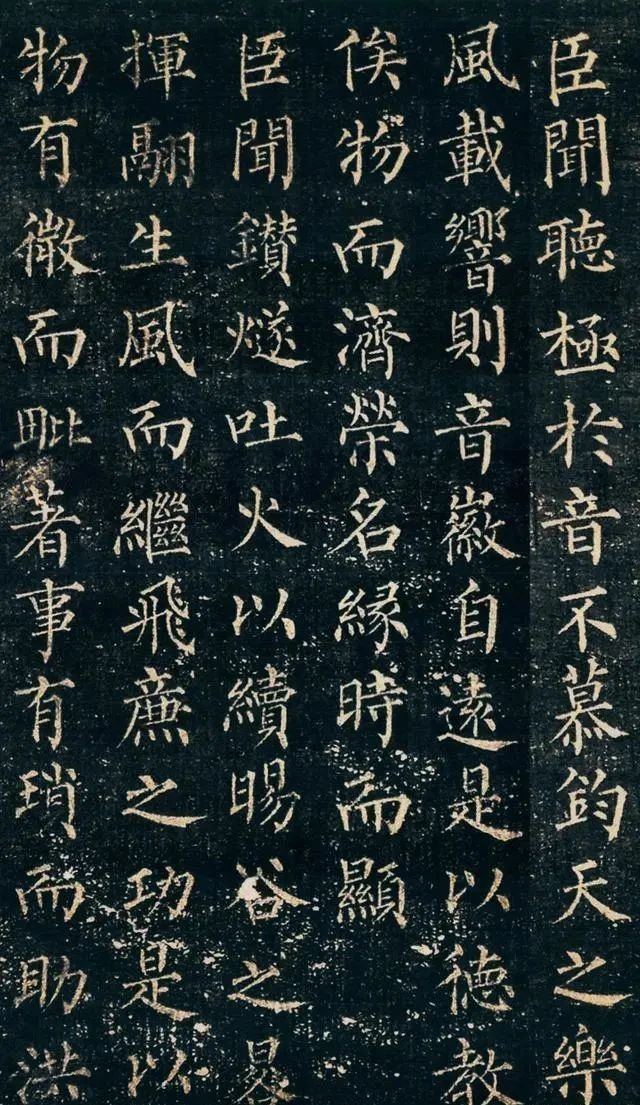 臣聞聴極於音不慕鈞天之樂
風載響則音徽自遠是以徳教
俟物而濟榮名縁時而顯
臣聞鑚燧吐火以續暘谷之晷
揮翮生風而繼飛廉之功是以
物有微而毗著事有瑣而助洪